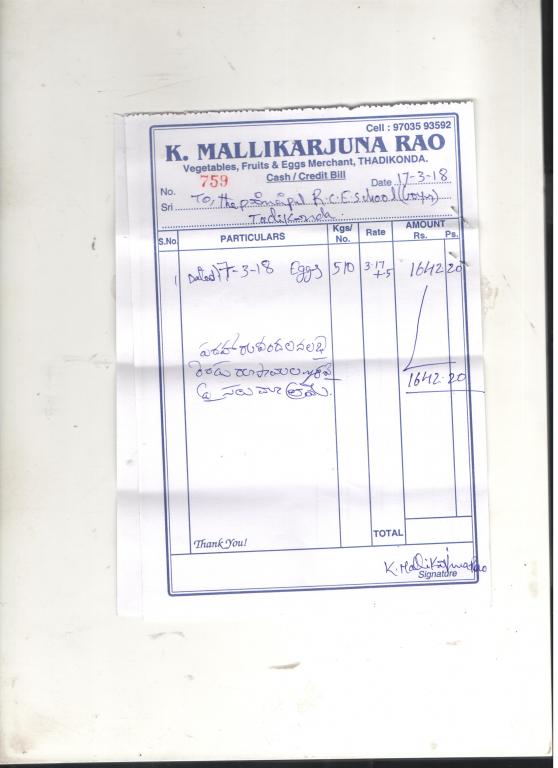 Cell : 97035 93592
K. MALLIKARJUNA RAO
Vegetables, Fruits & Eggs Merchant, THADIKONDA.
Cash / Credit Bill
No. 759 Date 17-3-18
Sri To, the principal R.C.E. School (boys)
Tadikonda.
S.No. PARTICULARS Kgs/ No. Rate AMOUNT Rs. Ps.
1 Dated 17-3-18 Eggs 510 1642 20
1642-20
TOTAL
Thank You!
K. Mallikarjuna Rao
Signature